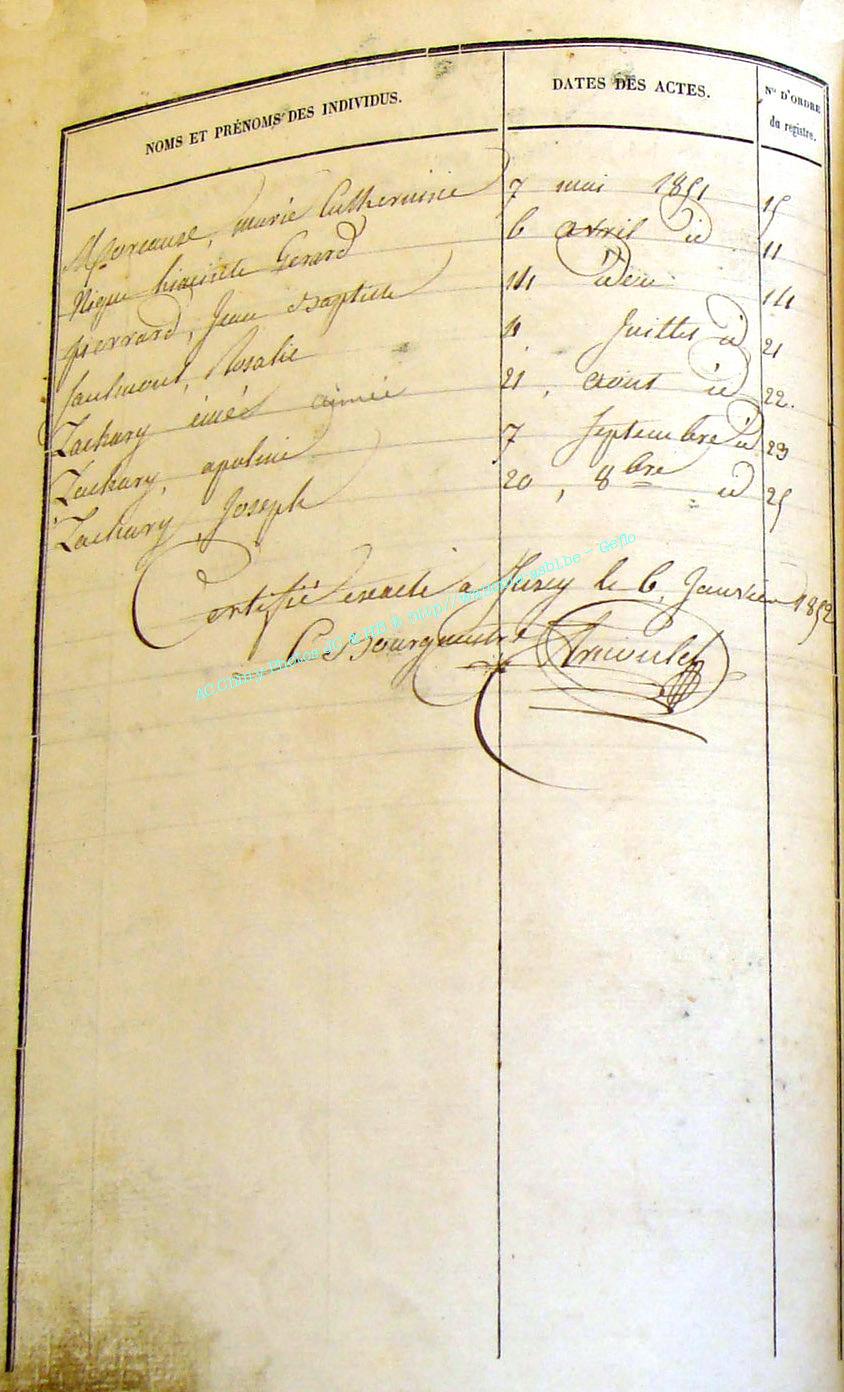 NOMS ET PRÉNOMS DES INDIVIDUS. DATES DES ACTES. Nos D'ORDRE du registre.
marie Catherinne 7 mai 1851 15
Nique hiacinte Gerard 6 avril id 11
pierrard, Jean Baptiste 14 idem 14
Saulmont, Rosalie 11 Juillet id 21
Zachary émée aimée 21, aout id 22.
Zachary, apoline 7 Septembre id 23
Zachary, Joseph 20, 8bre id 25
Certifié exacte a Jurey le 6 Janvier 1852
Le Bourgmestre
AC Chiny Photos JC & HB @ http:// asbl.be - Geflo